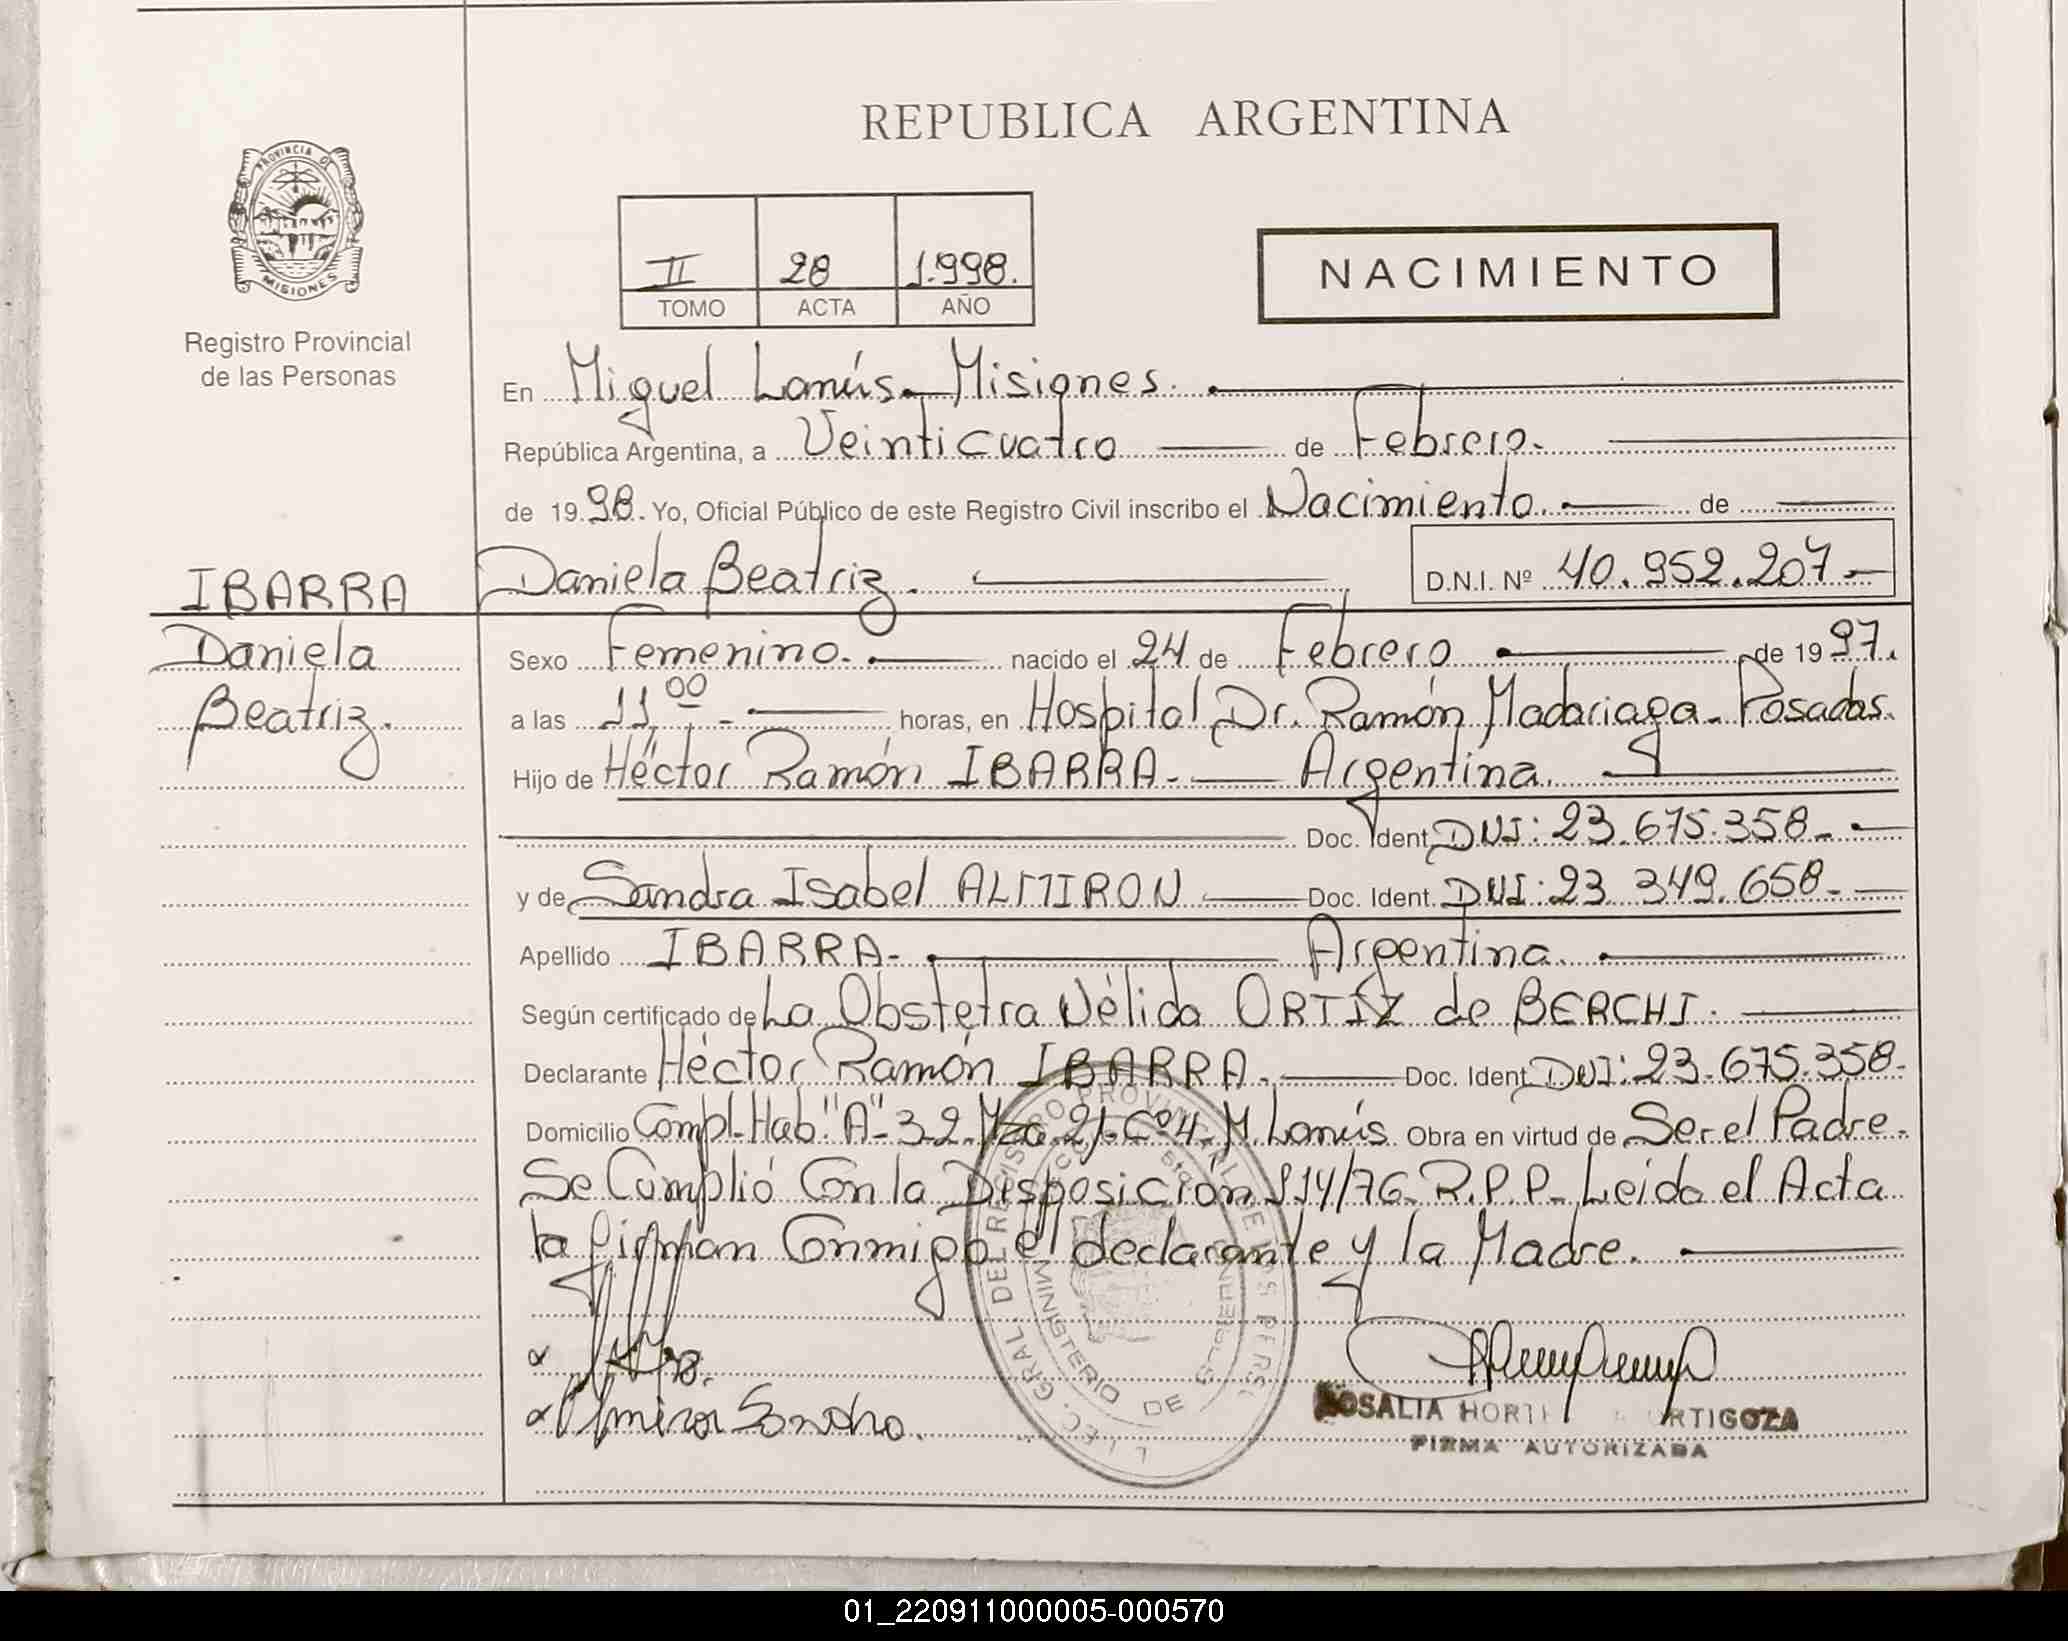 REPUBLICA ARGENTINA
PROVINCIA DE
MISIONES
Registro Provincial
de las Personas
II 28 1.998.
TOMO ACTA AÑO
NACIMIENTO
En Miguel Lanús - Misiones.
República Argentina, a Veinticuatro de Febrero.
de 1998. Yo, Oficial Público de este Registro Civil inscribo el Nacimiento. de
Daniela Beatriz. D.N.I. Nº 40.952.207-
IBARRA
Daniela
Beatriz.
Sexo Femenino. nacido el 24 de Febrero de 1997.
a las 11,00 - horas, en Hospital Dr. Ramón Madariaga - Posadas.
Hijo de Héctor Ramón IBARRA - Argentina.
Doc. Ident. DNI: 23.675.358-
y de Sandra Isabel ALMIRON Doc. Ident. DNI: 23.349.658-
Apellido IBARRA- Argentina.
Según certificado de La Obstetra Nélida ORTIZ de BERCHI.
Declarante Héctor Ramón IBARRA. Doc. Ident. DNI: 23.675.358-
Domicilio Compl. Hab. "A"-32. Mza. 21. Cº 4. M. Lanús. Obra en virtud de Ser el Padre.
Se Cumplió Con la Disposición 114/76 R.P.P. Leida el Acta
la firman Conmigo el declarante y la Madre.
DEL REGISTRO PROVINCIAL DE LAS PERS
MINISTERIO DE GOBIERNO
Almiron Sandra.
ROSALIA ORTIGOZA
FIRMA AUTORIZADA
01_220911000005-000570